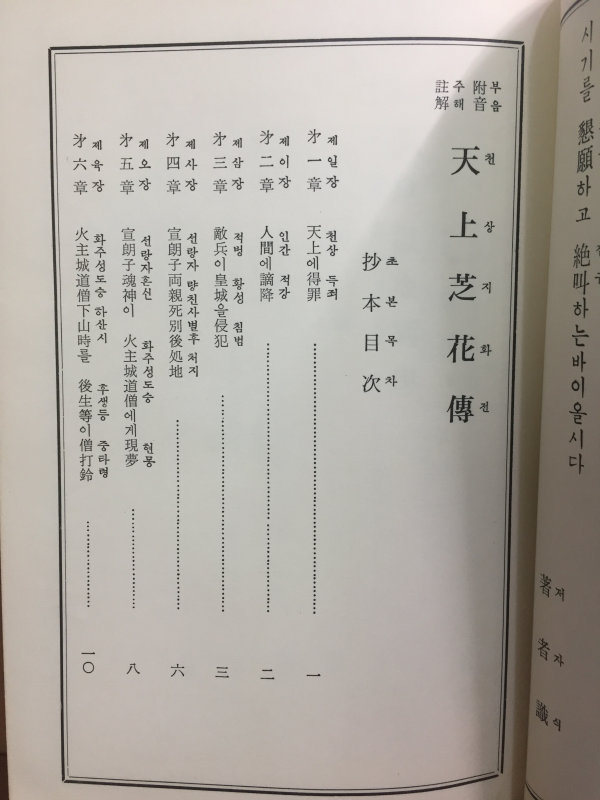 시기를 懇願하고 絶叫하는바이올시다
著者識
저자식
附音
부음
註解
주해
天上芝花傳
천상지화전
抄本目次
초본목차
제일장 천상 득죄
㐧一章 天上에得罪 一
제이장 인간 적강
㐧二章 人間에謫降 二
제삼장 적병 황성 침범
㐧三章 敵兵이皇城을侵犯 三
제사장 선랑자 량친사별후 처지
㐧四章 宣朗子両親死別後処地 六
제오장 선랑자혼신 화주성도승 현몽
㐧五章 宣朗子魂神이 火主城道僧에게現夢 八
제육장 화주성도승 하산시 후생등 중타령
㐧六章 火主城道僧下山時를 後生等이僧打鈴 一〇